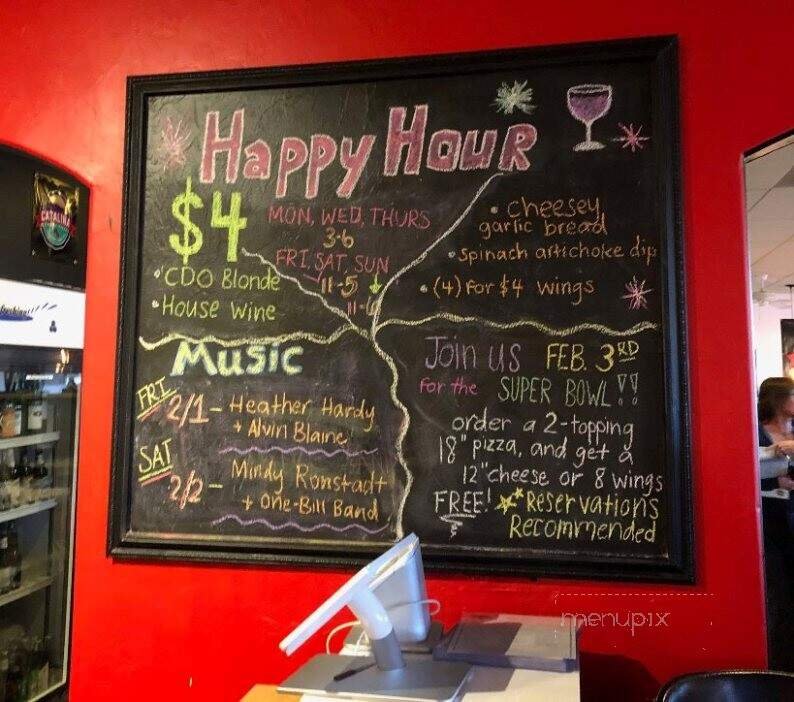 Happy Hour
$4
MON, WED, THURS
3-6
FRI, SAT, SUN
11-5
11-6
• CDO Blonde
• House Wine
• Cheesey
garlic bread
• Spinach artichoke dip
• (4) for $4 wings
Music
FRI
2/1 - Heather Hardy
+ Alvin Blaine
SAT
2/2 - Mindy Ronstadt
+ One-Bill Band
Join us FEB. 3RD
For the SUPER BOWL!!
order a 2-topping
18" pizza, and get a
12" cheese or 8 wings
FREE! * Reservations
Recommended
CATALINA
menupix